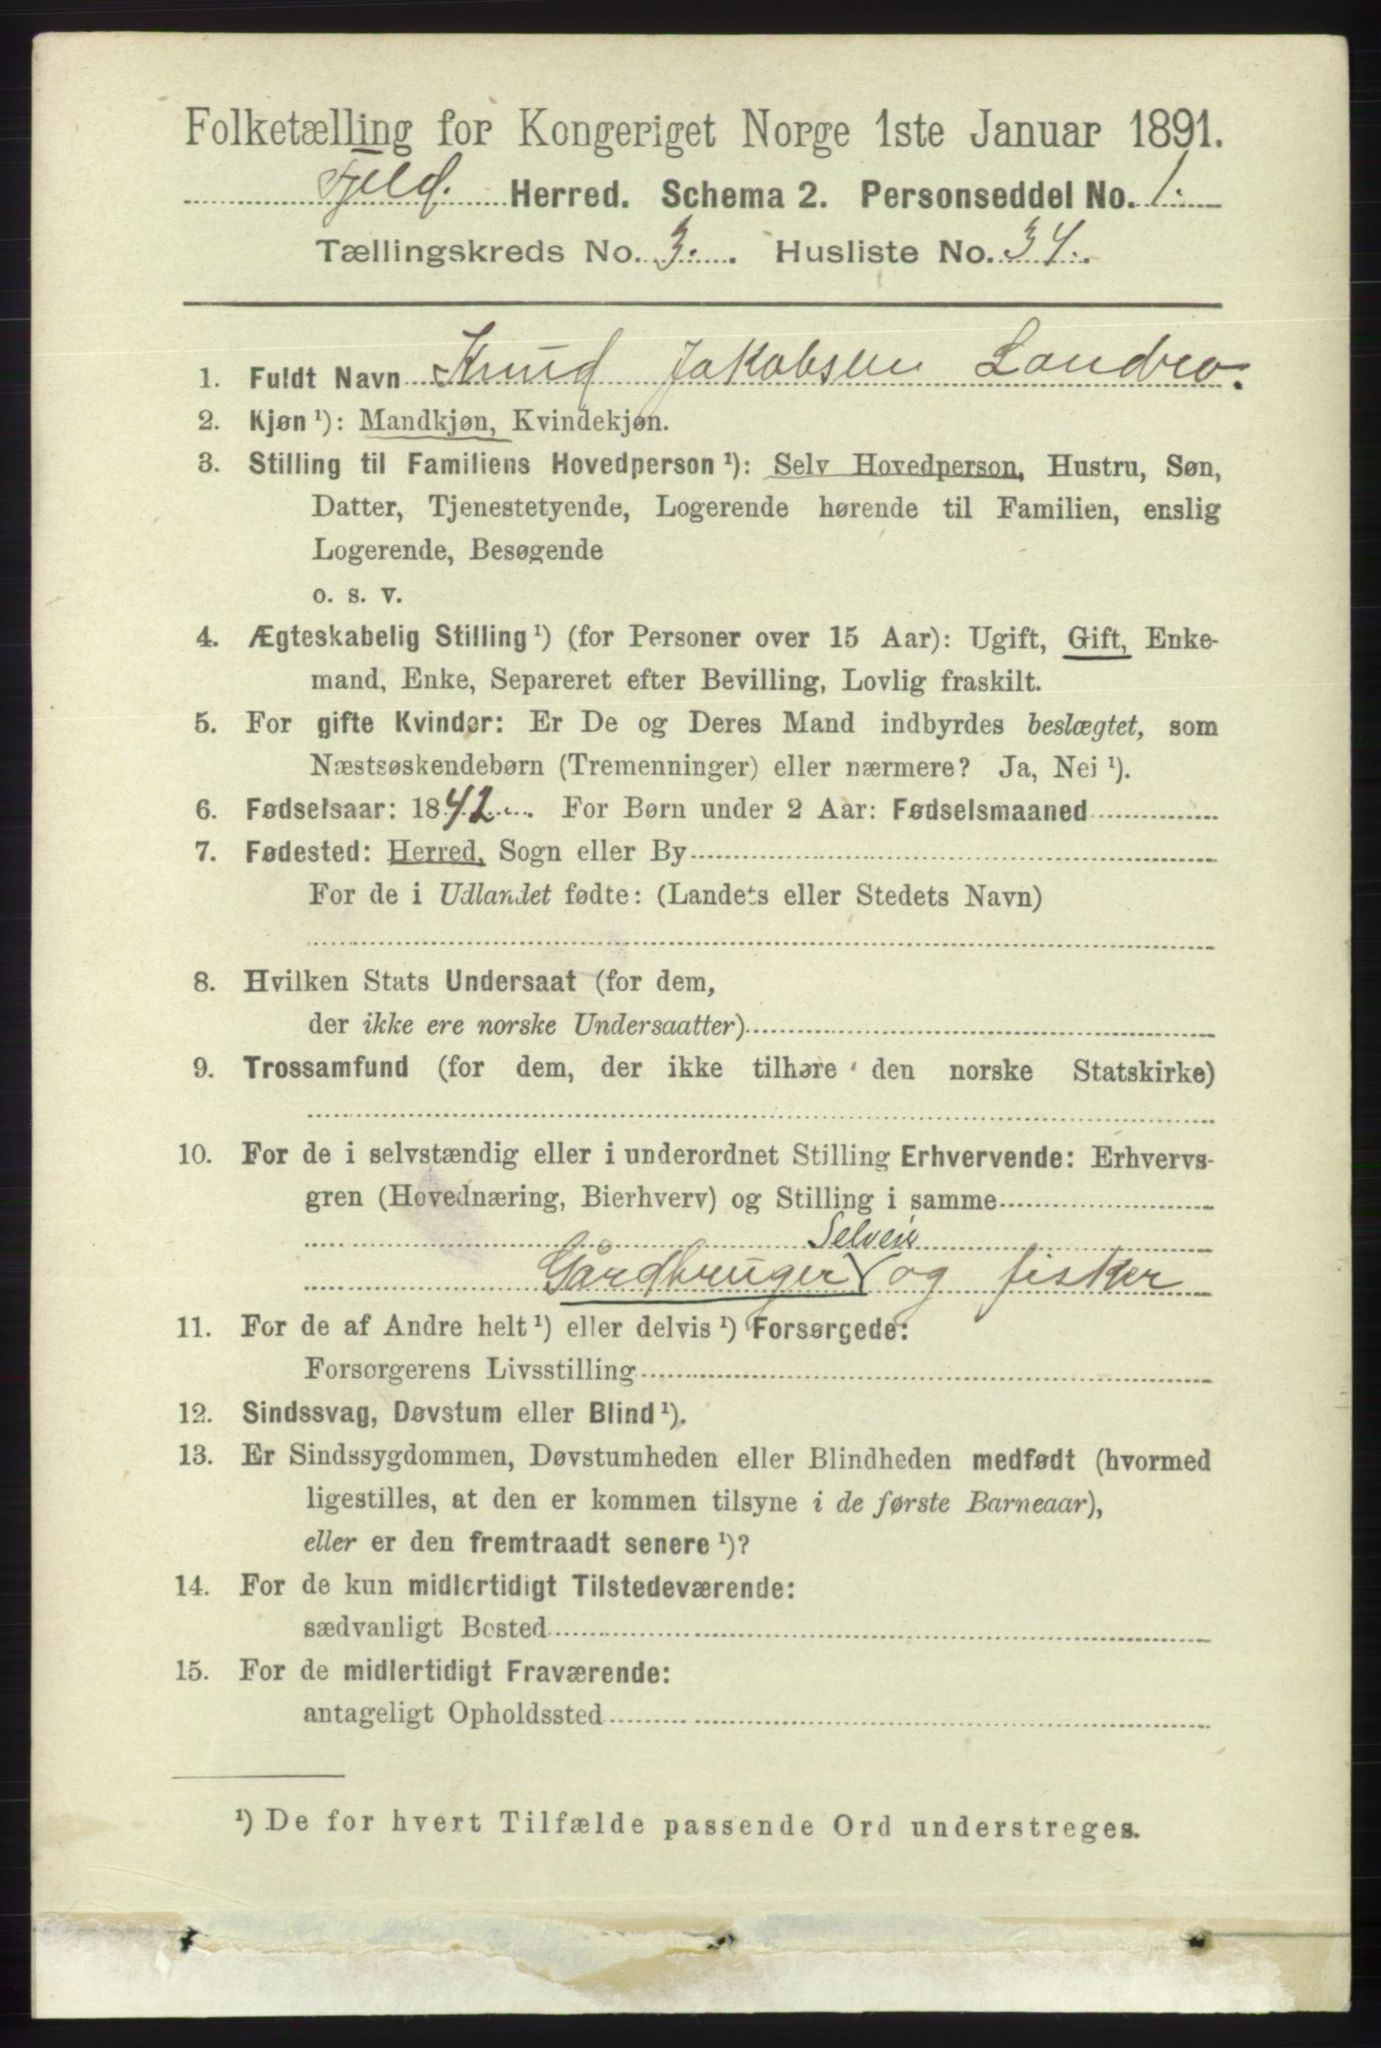 Folketælling for Kongeriget Norge 1ste Januar 1891.
Fjeld. Herred. Schema 2. Personseddel No. 1.
Tællingskreds No. 3. Husliste No. 34.
1. Fuldt Navn Knud Jakobsen Landro.
2. Kjøn ¹): Mandkjøn, Kvindekjøn.
3. Stilling til Familiens Hovedperson ¹): Selv Hovedperson, Hustru, Søn,
Datter, Tjenestetyende, Logerende hørende til Familien, enslig
Logerende, Besøgende
o. s. v.
4. Ægteskabelig Stilling ¹) (for Personer over 15 Aar): Ugift, Gift, Enke-
mand, Enke, Separeret efter Bevilling, Lovlig fraskilt.
5. For gifte Kvinder: Er De og Deres Mand indbyrdes beslægtet, som
Næstsøskendebørn (Tremenninger) eller nærmere? Ja, Nei ¹).
6. Fødselsaar: 1842. For Børn under 2 Aar: Fødselsmaaned
7. Fødested: Herred, Sogn eller By
For de i Udlandet fødte: (Landets eller Stedets Navn)
8. Hvilken Stats Undersaat (for dem,
der ikke ere norske Undersaatter)
9. Trossamfund (for dem, der ikke tilhøre den norske Statskirke)
10. For de i selvstændig eller i underordnet Stilling Erhvervende: Erhvervs-
gren (Hovednæring, Bierhverv) og Stilling i samme
Selveier
Gårdbruger og fisker
11. For de af Andre helt ¹) eller delvis ¹) Forsørgede:
Forsørgerens Livsstilling
12. Sindssvag, Døvstum eller Blind ¹).
13. Er Sindssygdommen, Døvstumheden eller Blindheden medfødt (hvormed
ligestilles, at den er kommen tilsyne i de første Barneaar),
eller er den fremtraadt senere ¹)?
14. For de kun midlertidigt Tilstedeværende:
sædvanligt Bosted
15. For de midlertidigt Fraværende:
antageligt Opholdssted
¹) De for hvert Tilfælde passende Ord understreges.